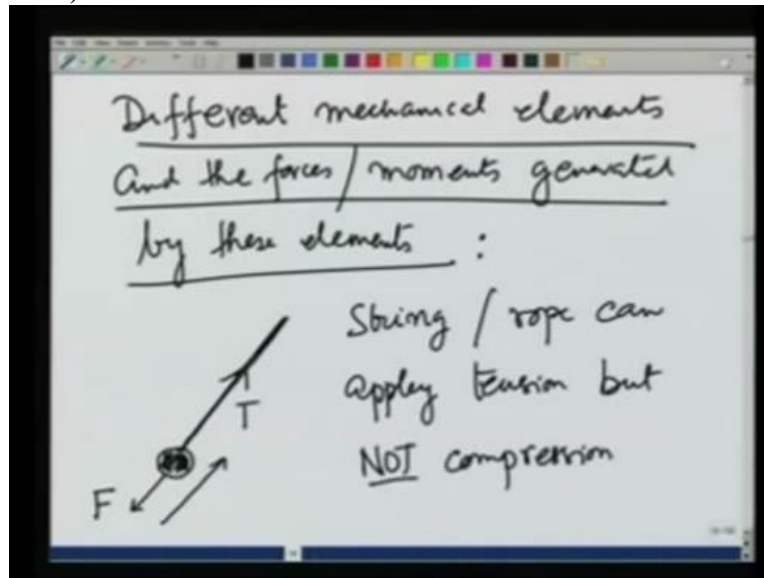 Different mechanical elements
and the forces / moments generated
by these elements :
String / rope can
apply tension but
NOT compression
T
F